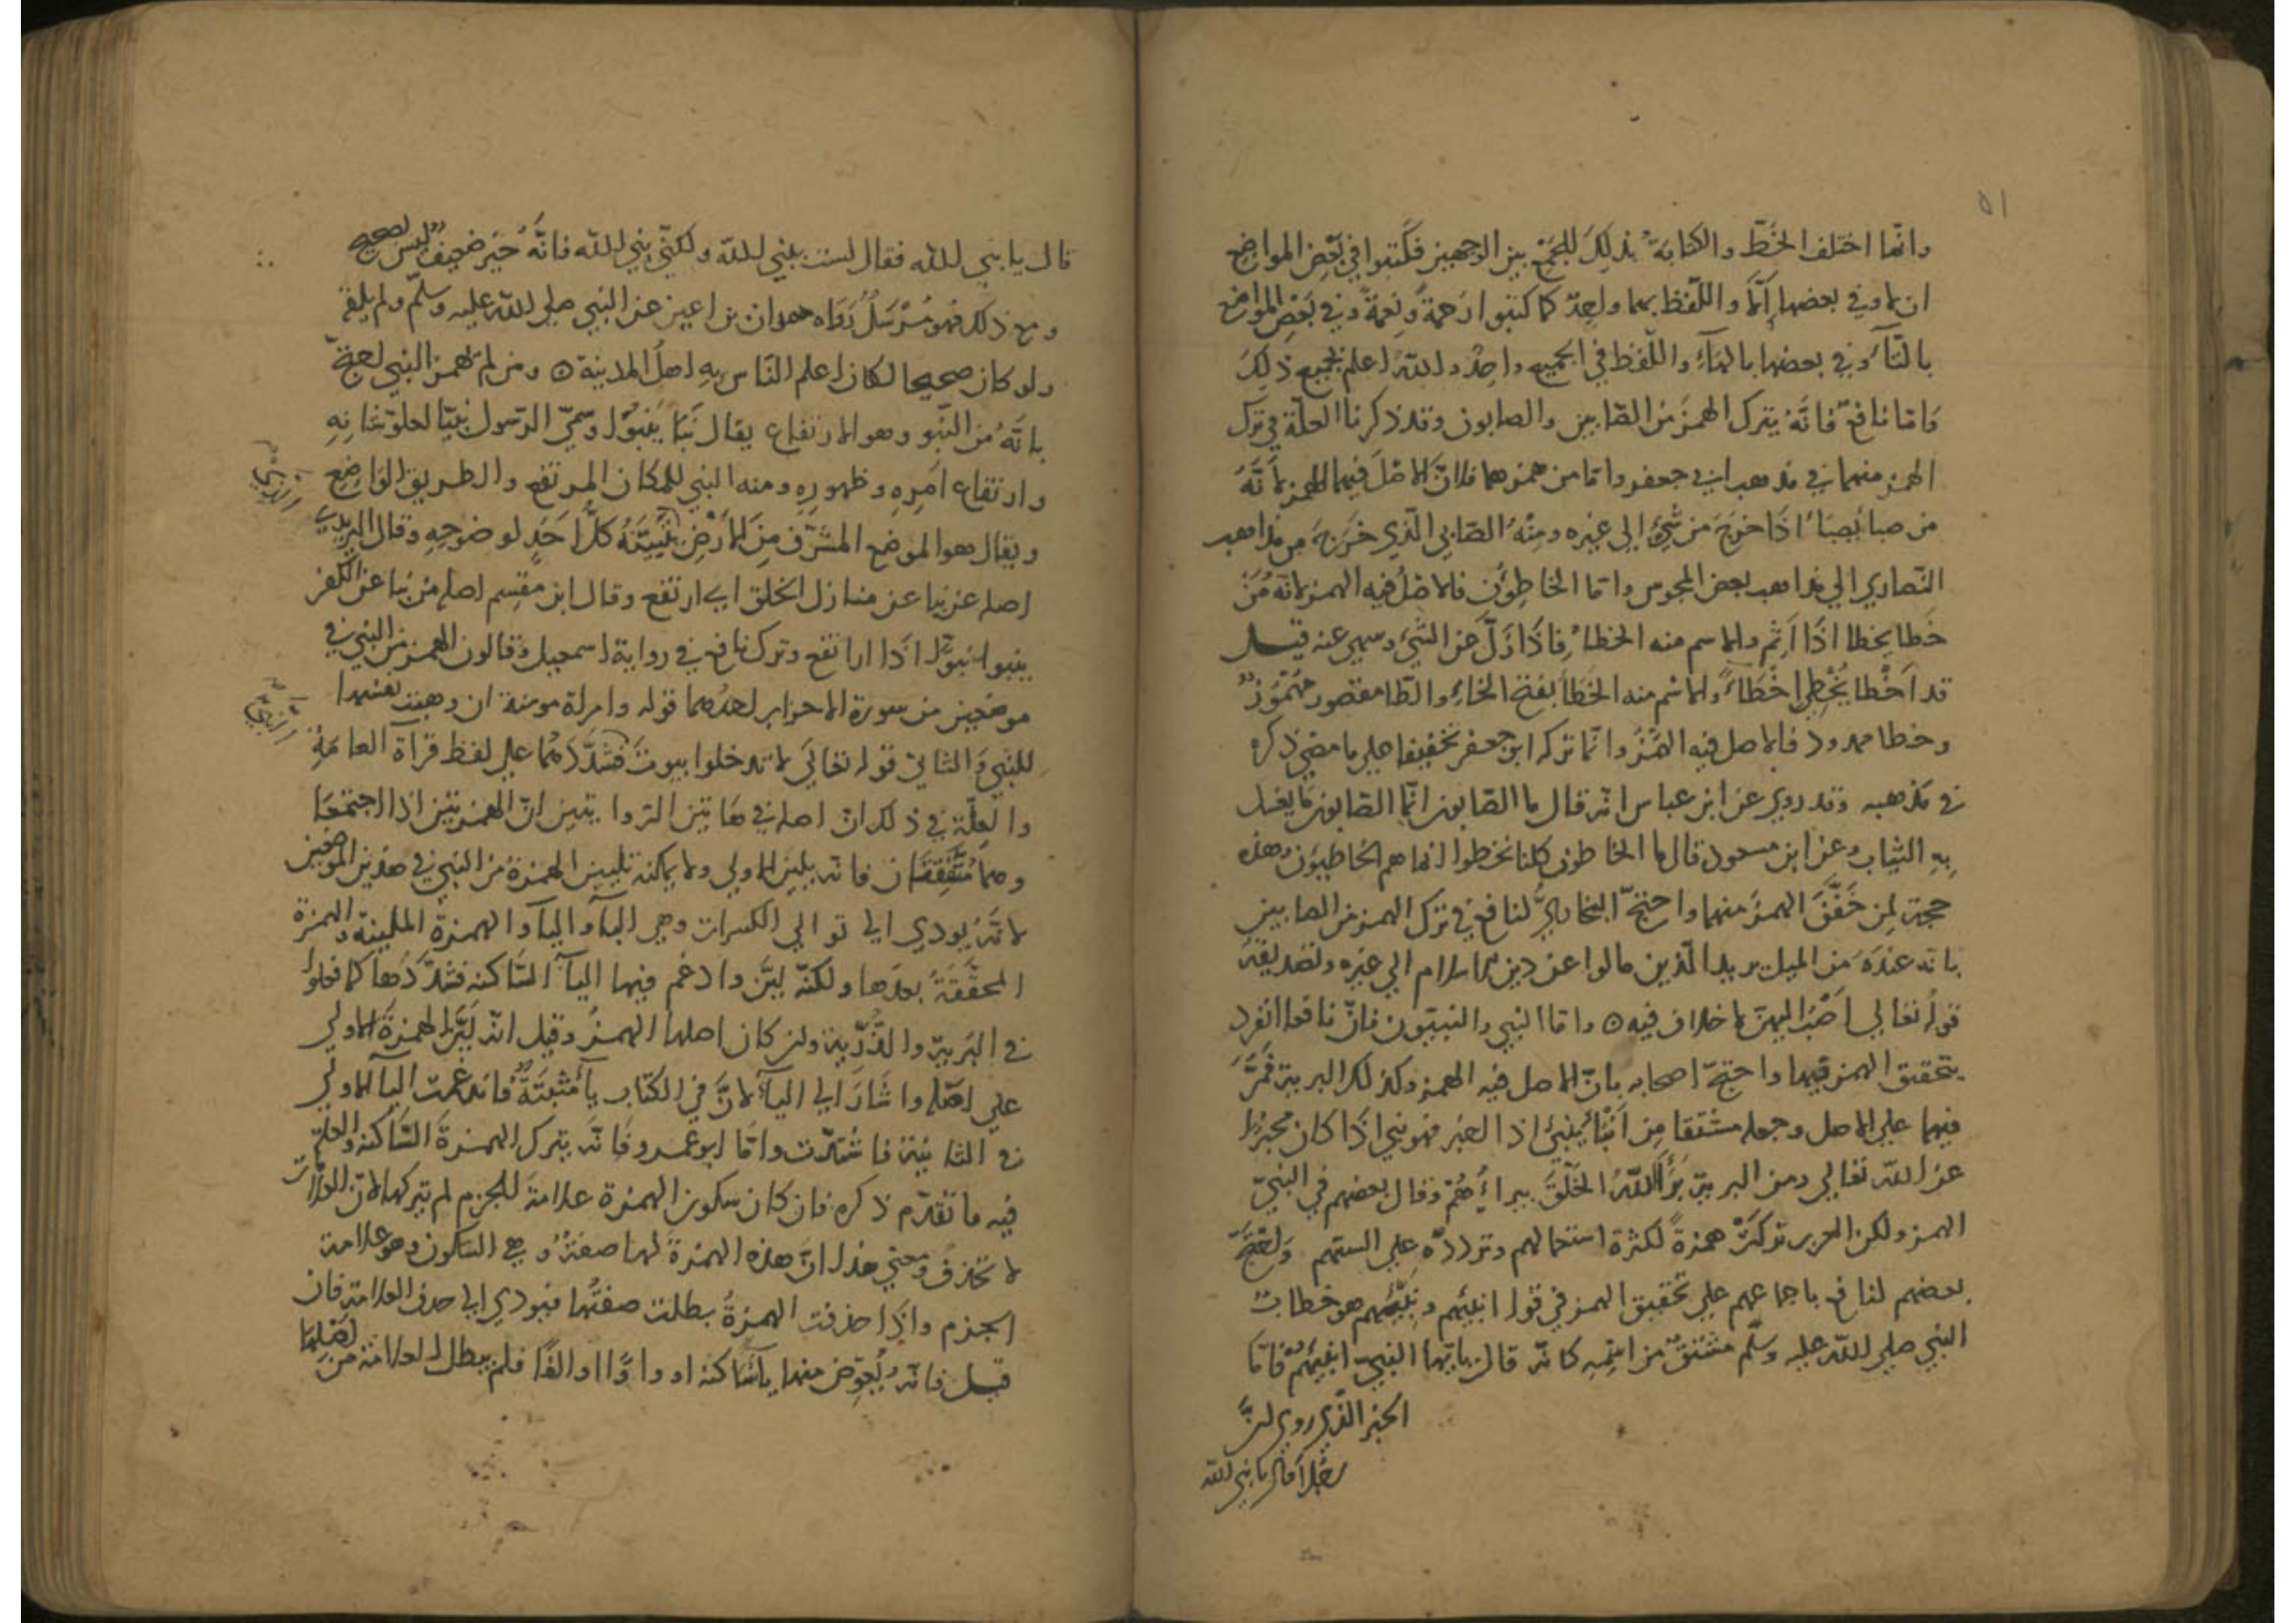 ٥١
وانما اختلف الخط والكتابة بذلك للجمع بين الوجهين فكتبوا في بعض المواضع
ان لا وفي بعضها ألّا واللفظ بهما واحد كما كتبوا رحمة ونعمة وفي بعض المواضع
بالتاء وفي بعضها بالهاء واللفظ في الجميع واحد والله اعلم بجميع ذلك
واما نافع فانه يترك الهمز من الصابين والصابون وقد ذكرنا العلة في ترك
الهمز منهما في مذهب ابي جعفر واما من همزهما فلان الاصل فيهما الهمز لانه
من صبا يصبأ اذا خرج من شيء الى غيره ومنه الصابي الذي خرج من مذاهب
النصاري الي مذاهب بعض المجوس واما الخاطؤن فالاصل فيه الهمز لانه من
خطا يخطا اذا اثم والاسم منه الخطا فاذا زل عن الشيء وسهي عنه قيل
قد اخطا يخطي اخطاء والاسم منه الخطأ بفتح الخاء والطا مقصور مهموز
وخطا ممدود فالاصل فيه الهمز وانما تركه ابو جعفر تخفيفا علي ما مضي ذكره
في مذهبه وقد روي عن ابن عباس انه قال ما الصابون انما الصابون ما يغسل
به الثياب وعن ابن مسعود قال ما الخاطون كلنا نخطوا انما هم الخاطيون وهذه
حجة لمن حقق الهمز منهما واحتج البخاري لنافع في ترك الهمز من الصابين
بانه عنده من الميل يريد الذين مالوا عن دين الاسلام الي غيره وتصديقه
قوله تعالي اصب اليهن لا خلاف فيه ه واما النبي والنبيون فان نافعا انفرد
بتحقيق الهمز فيهما واحتج اصحابه بان الاصل فيه الهمز وكذلك البرية فمر
فيهما علي الاصل وجعله مشتقا من انبأ ينبئ اذا اخبر فهو نبي اذا كان مخبرا
عن الله تعالي ومن البرية برأ الله الخلق يبرأهم وقال بعضهم في النبي
الهمز ولكن العرب تركت همزه لكثرة استعمالهم وتردده علي السنتهم واحتج
بعضهم لنافع باجماعهم علي تحقيق الهمز في قوله انبئهم ونبئهم هو خطاب
النبي صلي الله عليه وسلم مشتق من اسمه كانه قال يايها النبي انبئهم فاما
الخبر الذي روي ان
رجلا قال يا نبي الله
قال يا نبي الله فقال لست بنبي الله ولكني نبي الله فانه خبر ضعيف ليس بصحيح
ومع ذلك فهو مرسل رواه حمران بن اعين عن النبي صلي الله عليه وسلم ولم يلقه
ولو كان صحيحا لكان اعلم الناس به اهل المدينة ه ومن لم يهمز النبي احتج
بانه من النبو وهو الارتفاع يقال نبا ينبو وسمي الرسول نبيا لعلو شانه
وارتفاع امره وظهوره ومنه النبي للمكان المرتفع والطريق الواضح
ويقال هو الموضع المشرف من الارض كل احد لوضوحه وقال اليزيدي
اصله عن نبا عن منازل الخلق اي ارتفع وقال ابن مقسم اصله من نبا عن الكفر
ينبوا نبوا اذا ارتفع وترك نافع في رواية اسمعيل وقالون الهمز من النبي في
موضعين من سورة الاحزاب احدهما قوله وامراة مومنة ان وهبت نفسها
للنبي والثاني قوله تعالي لا تدخلوا بيوت فشددهما علي لفظ قراة العامة
والعلة في ذلك ان اصله في هاتين الروايتين ان الهمزتين اذا اجتمعتا
وهما متفقتان فانه يلين الاولي ولا يمكنه تليين الهمزة من النبي في هذين الموضعين
لانه يودي الي توالي الكسرات وهي الباء والياء والهمزة الملينة والهمزة
المحققة بعدها ولكنه لين وادغم فيها الياء الساكنة فشددها كما فعلوا
في البرية والذرية ولان كان اصلها الهمز وقيل انه لين الهمزة الاولي
علي اصله واشار الي الياء لان في الكتاب ياء مثبتة فادغمت الياء الاولي
في الثانية فاشتدت واما ابو عمرو فانه يترك الهمزة الساكنة والعلة
فيه ما تقدم ذكره فان كان سكون الهمزة علامة للجزم لم يتركها لان العلامات
لا تحذف ومعني هذا ان هذه الهمزة لها صفة وهي السكون وهو علامة
الجزم واذا حذفت الهمزة بطلت صفتها فيودي الي حذف العلامة فان
قيل فانه يعوض منها ياء ساكنة او واوا او الفا فلم يبطل العلامة من اصلها